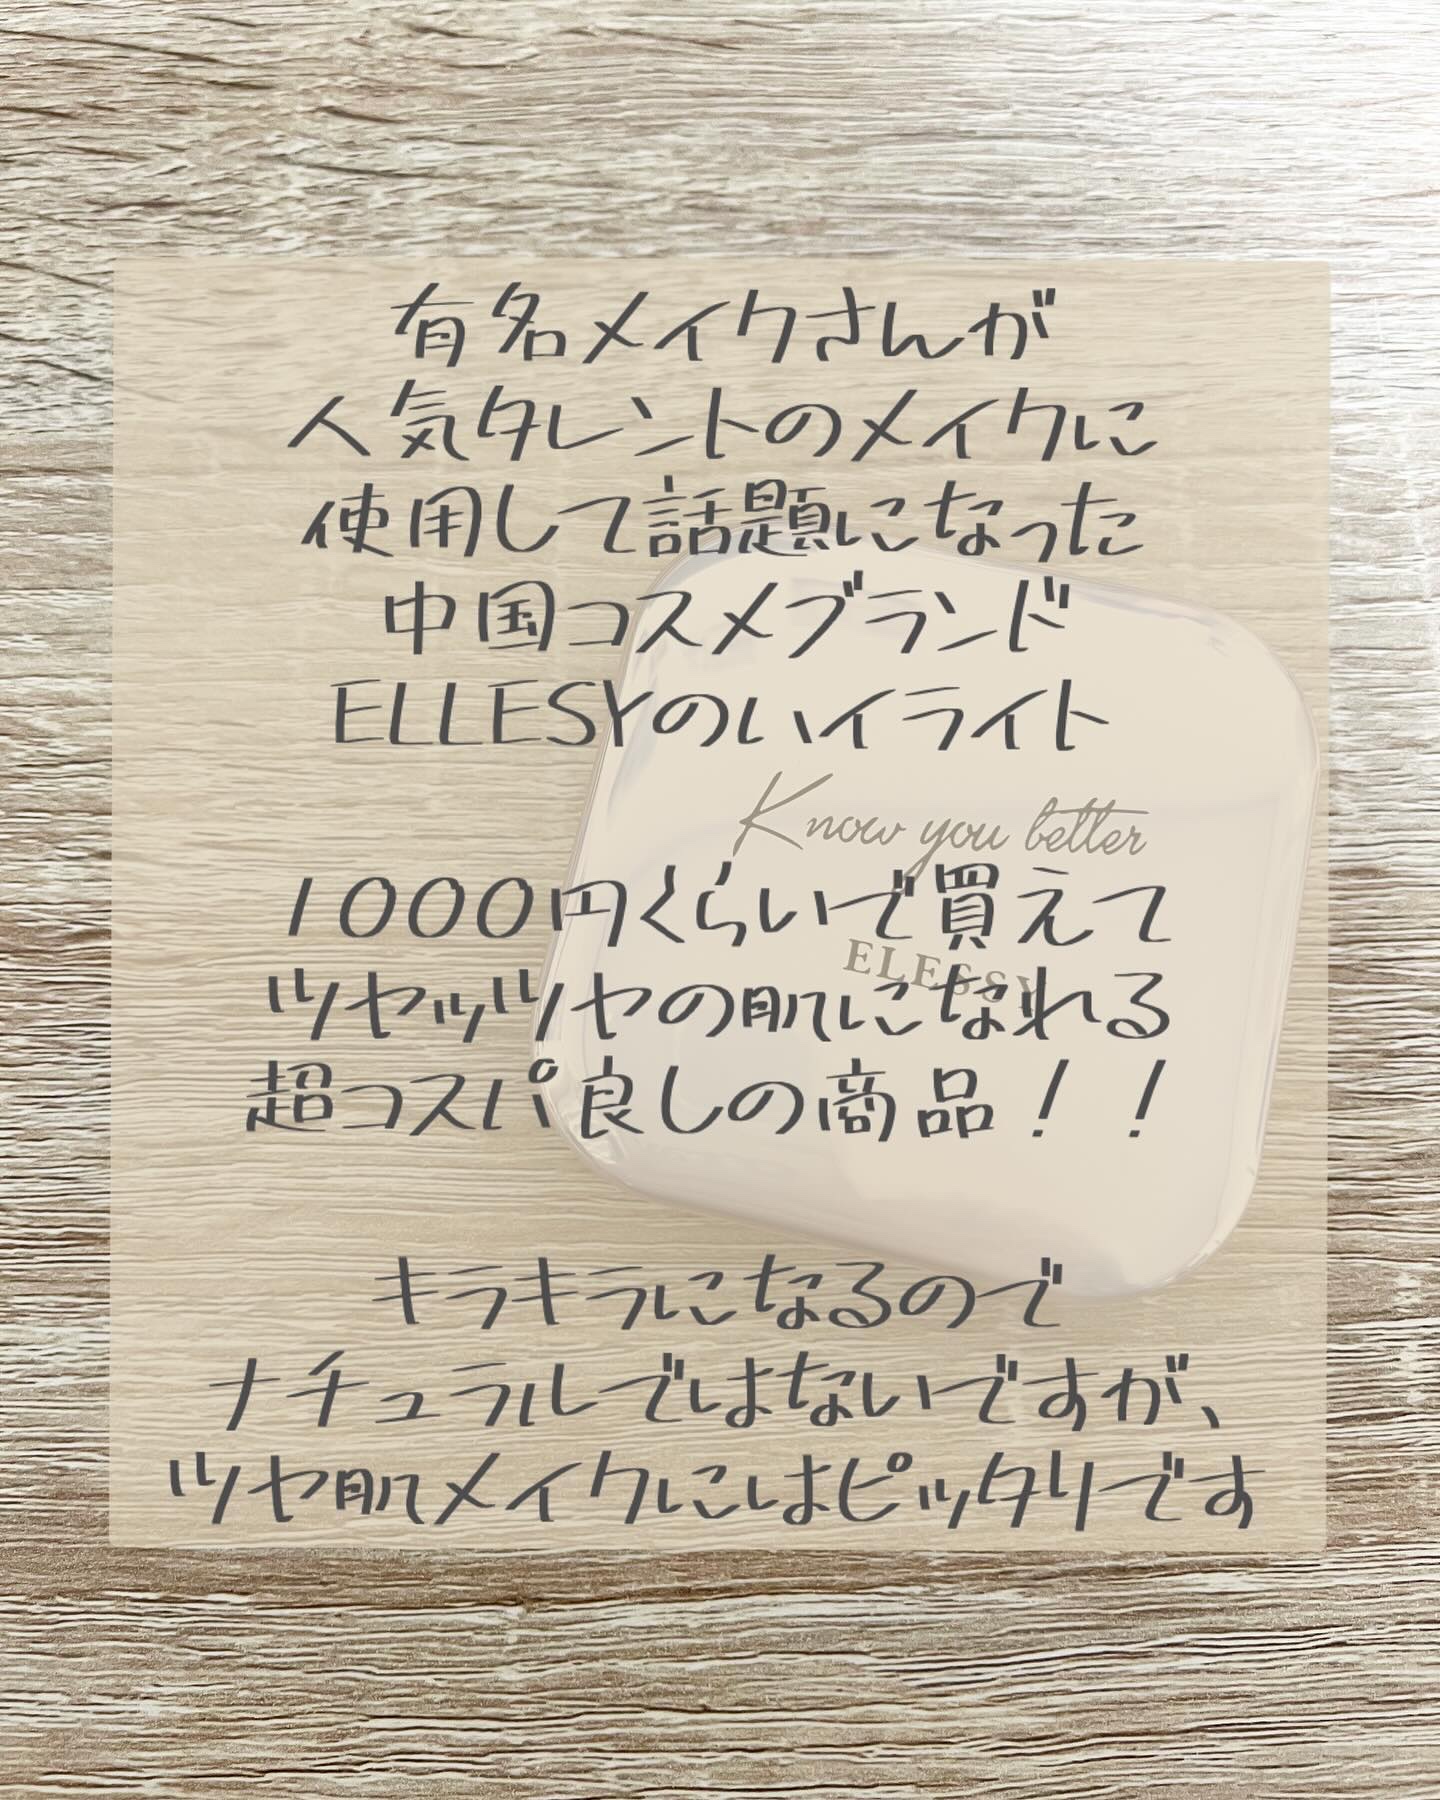 有名メイクさんが
人気タレントのメイクに
使用して話題になった
中国コスメブランド
ELLESYのハイライト
Know you better
1000円くらいで買えて
ELESSY
ツヤッツヤの肌になれる
超コスパ良しの商品！！
キラキラになるので
ナチュラルではないですが、
ツヤ肌メイクにはピッタリです